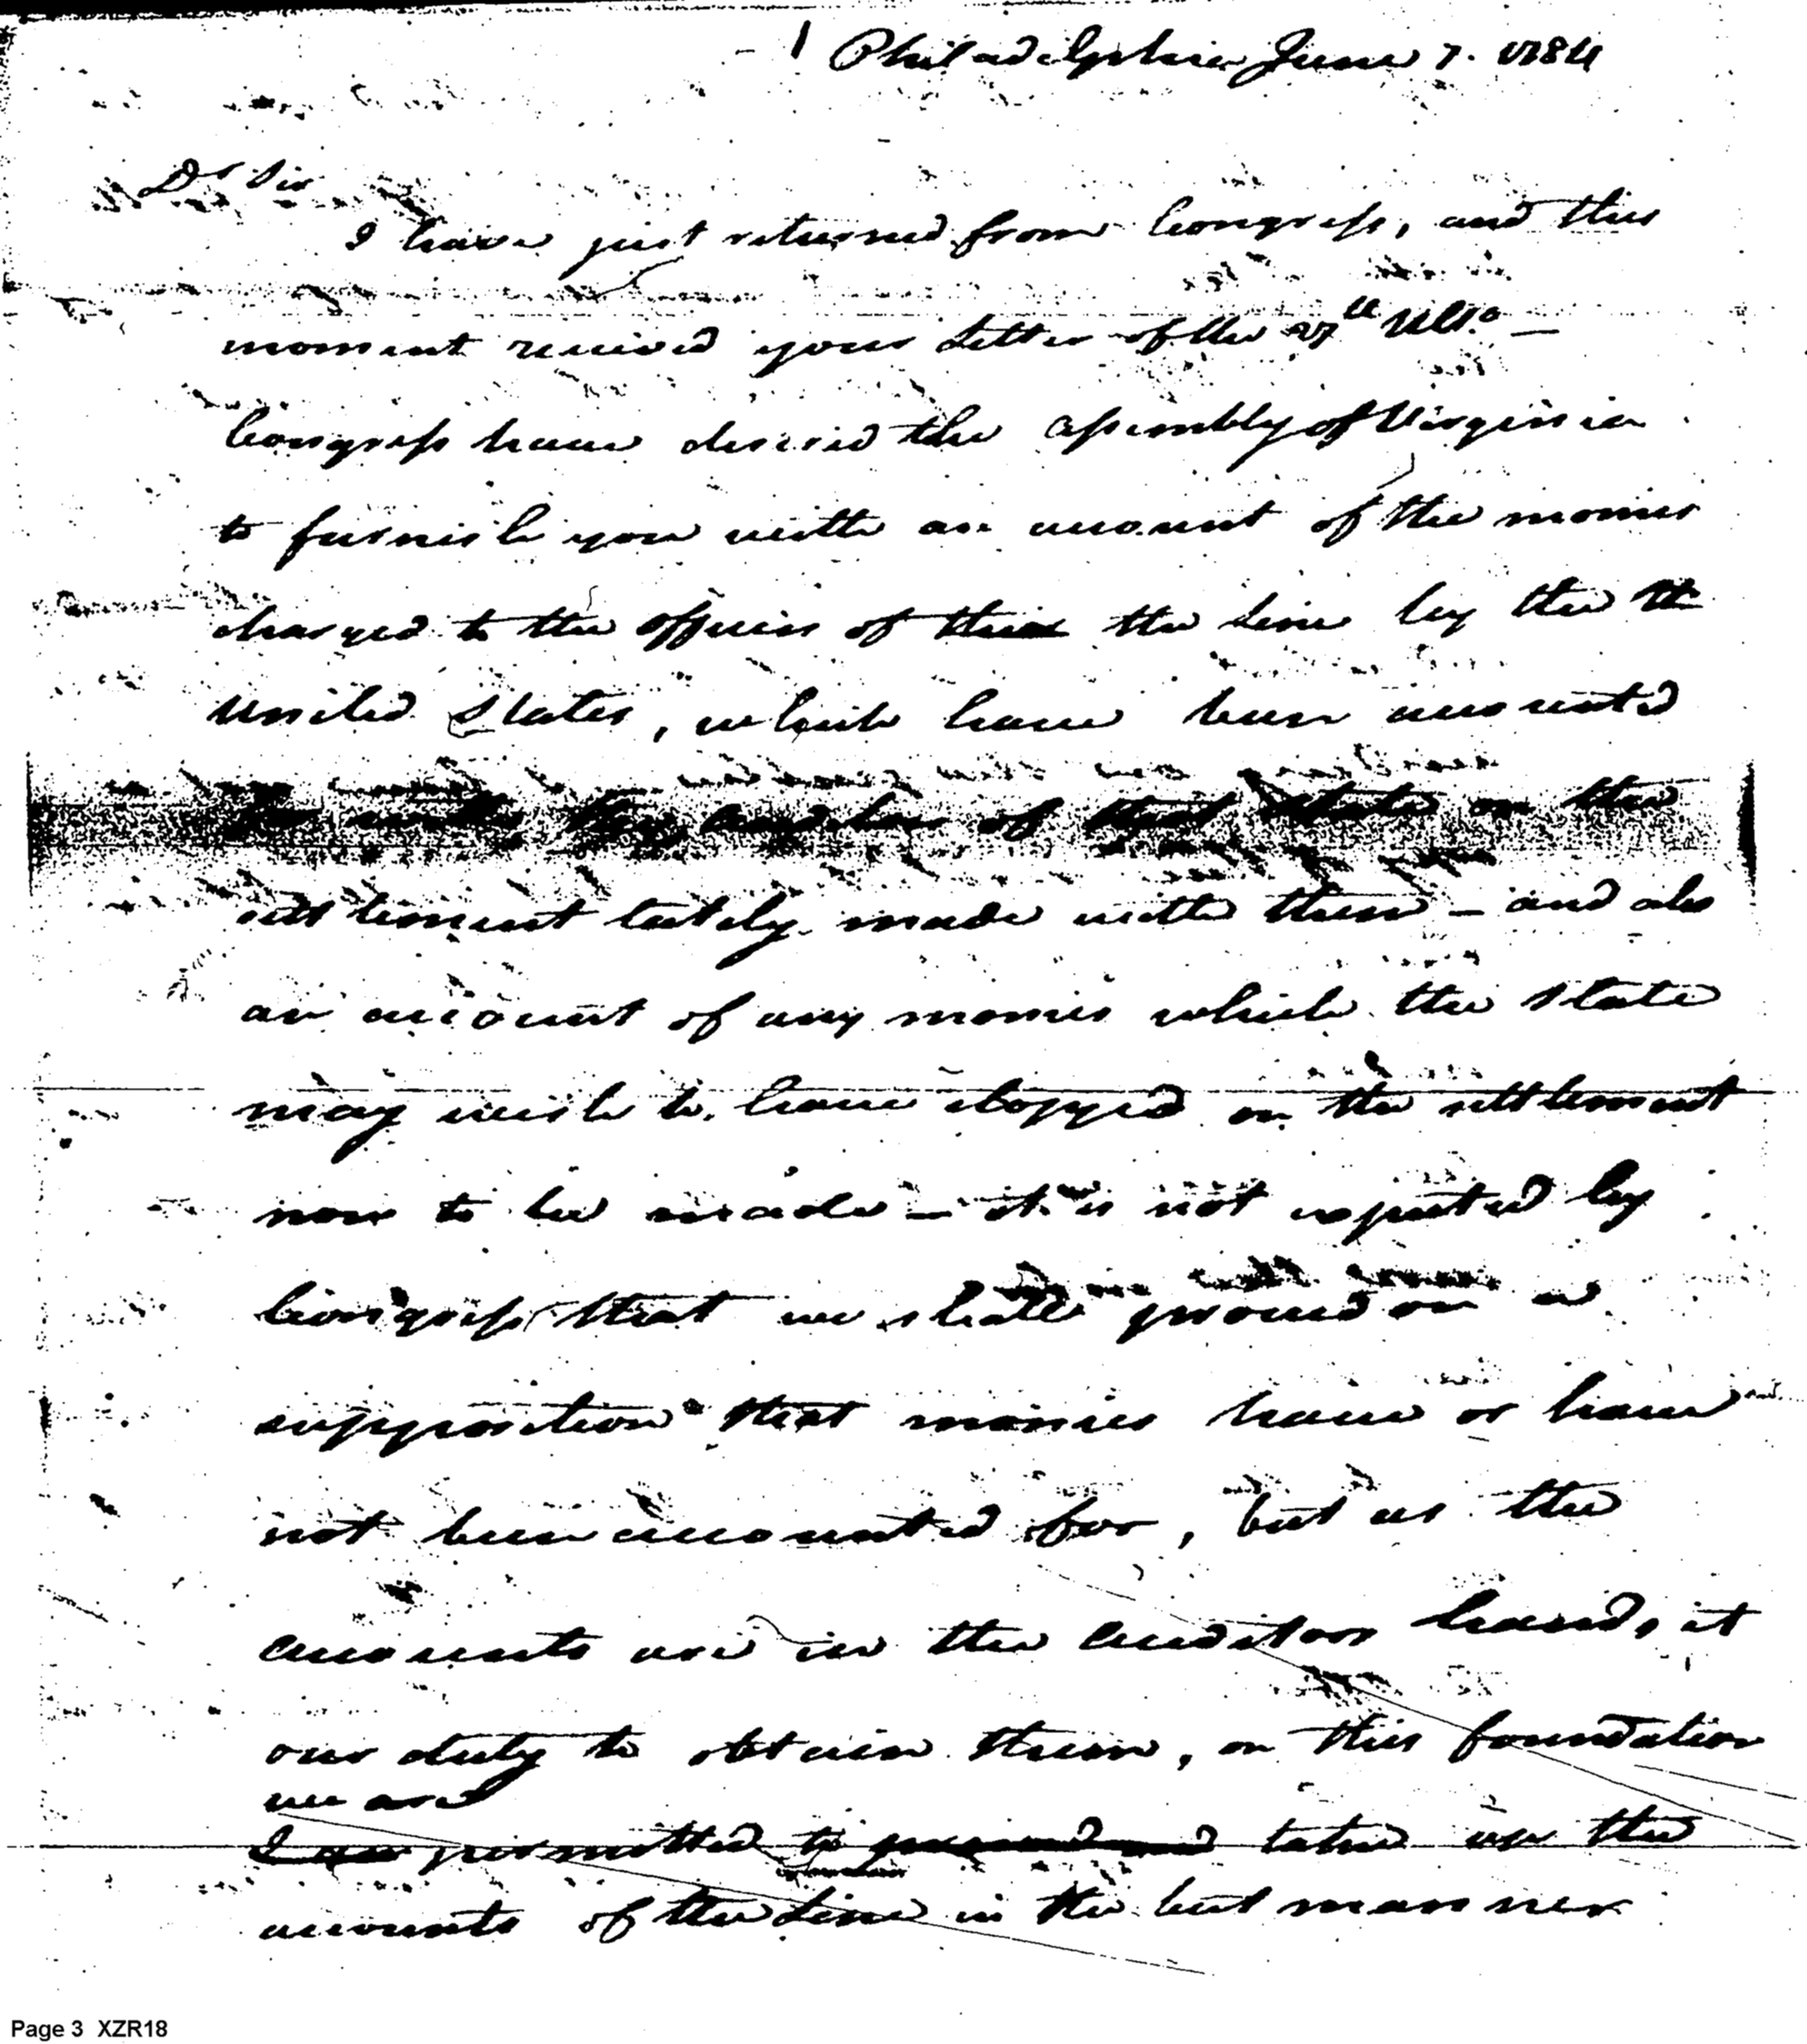 Philadelphia June 7. 1784
Dr Sir
I have just returned from Congress, and this
moment received your Letter of the 27th Ulto —
Congress have desired the assembly of Virginia
to furnish you with an account of the monies
charged to the officers of the Line by the
United States, which have been accounted
of that State on the
settlement lately made with them — and also
an account of any monies which the State
may wish to have stopped on the settlement
now to be made — it is not expected by
Congress that we shall proceed on a
supposition that monies have or have
not been accounted for, but as the
accounts are in the auditors hands, it
our duty to obtain them, on this foundation
we are
I permitted to take up the
accounts of the Line in the best manner
Page 3 XZR18